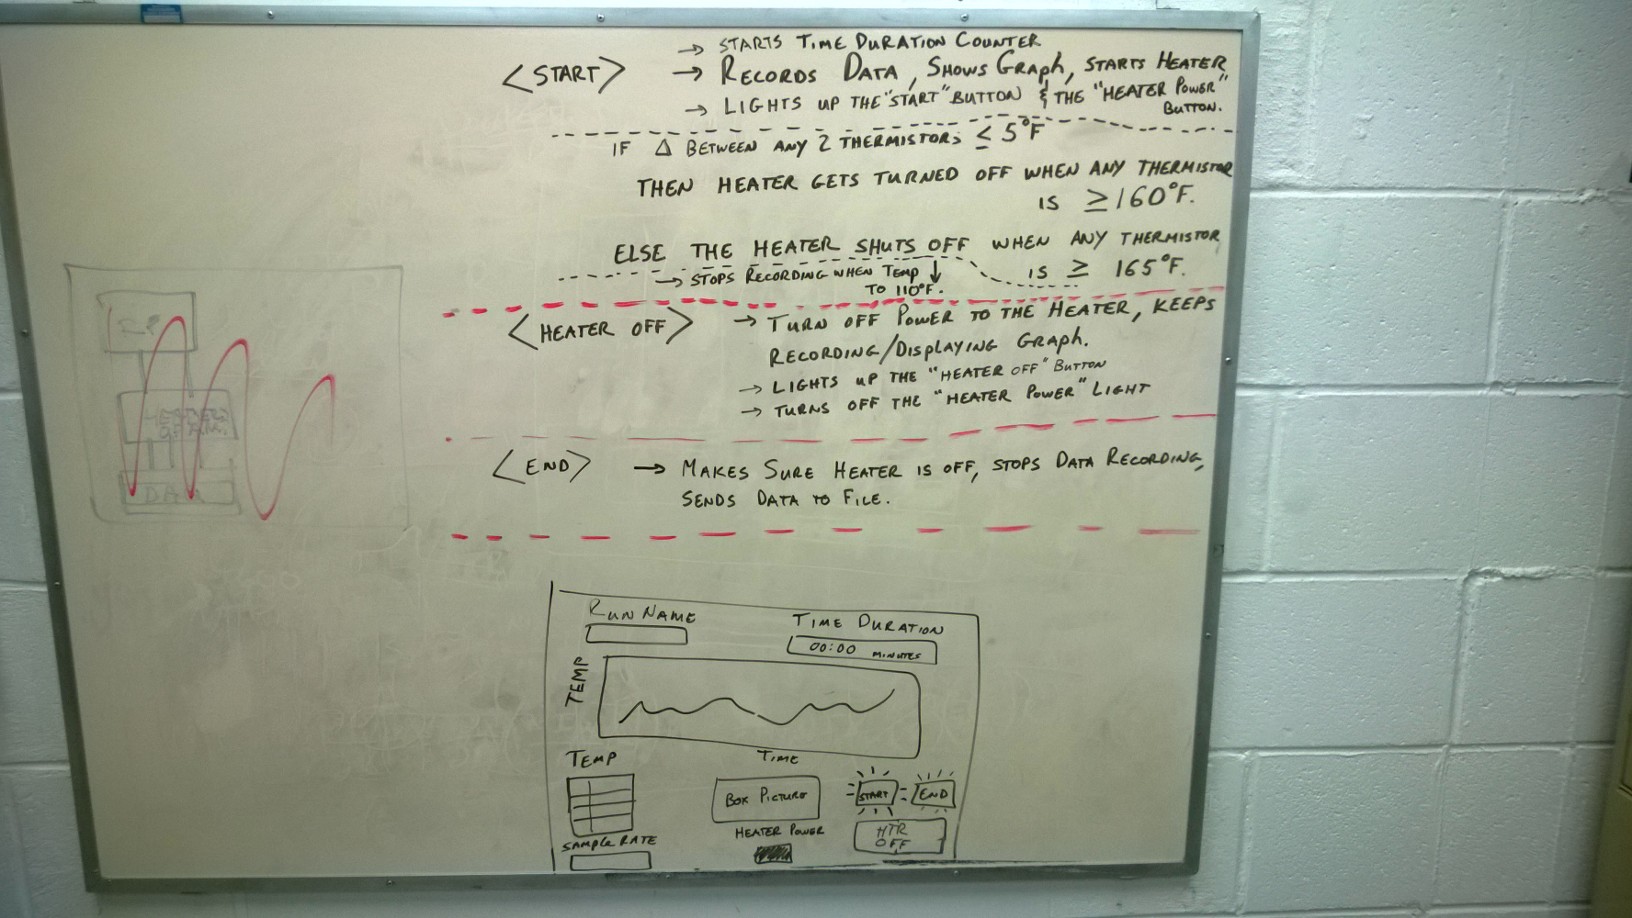 → STARTS TIME DURATION COUNTER
<START> → RECORDS DATA, SHOWS GRAPH, STARTS HEATER
→ LIGHTS UP THE "START" BUTTON & THE "HEATER POWER"
BUTTON.
IF Δ BETWEEN ANY 2 THERMISTORS ≤ 5°F
THEN HEATER GETS TURNED OFF WHEN ANY THERMISTOR
IS ≥ 160°F.
ELSE THE HEATER SHUTS OFF WHEN ANY THERMISTOR
IS ≥ 165°F.
→ STOPS RECORDING WHEN TEMP ↓
TO 110°F.
<HEATER OFF> → TURN OFF POWER TO THE HEATER, KEEPS
RECORDING/DISPLAYING GRAPH.
→ LIGHTS UP THE "HEATER OFF" BUTTON
→ TURNS OFF THE "HEATER POWER" LIGHT
<END> → MAKES SURE HEATER IS OFF, STOPS DATA RECORDING,
SENDS DATA TO FILE.
RUN NAME
TIME DURATION
00:00 MINUTES
TEMP
TIME
TEMP
BOX PICTURE
START
END
HEATER POWER
HTR
OFF
SAMPLE RATE